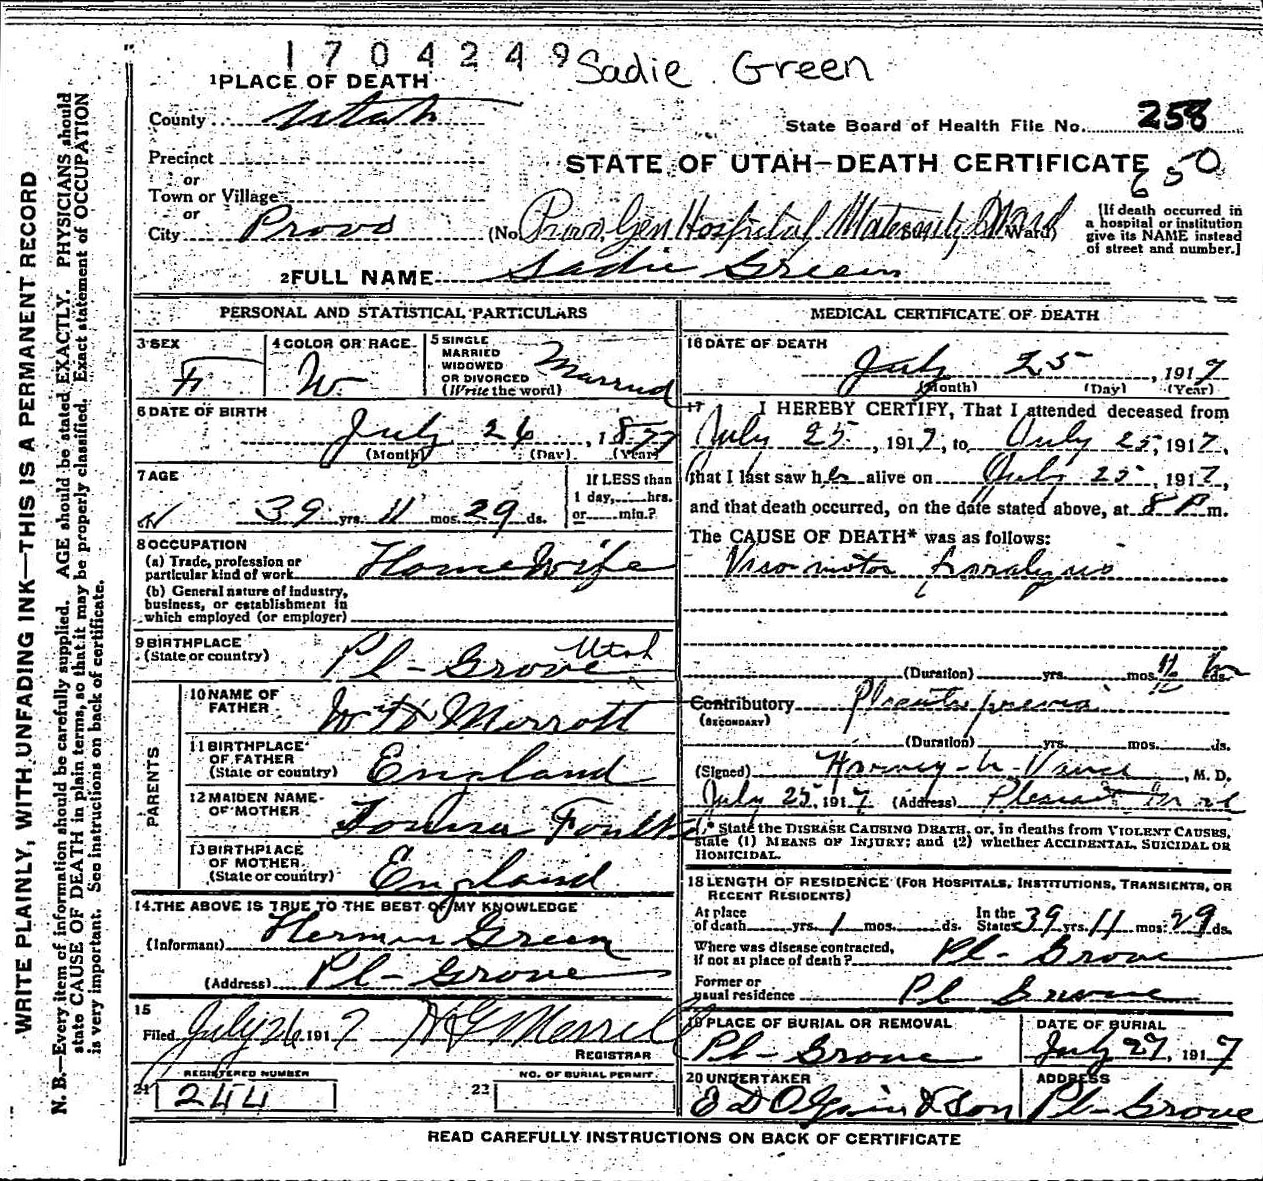 1704249 Sadie Green
1 PLACE OF DEATH
County Utah
State Board of Health File No. 258
Precinct
STATE OF UTAH—DEATH CERTIFICATE
650
or
Town or Village
or
City Provo (No. Provo Gen Hospital, Maternity Ward Ward)
[If death occurred in
a hospital or institution
give its NAME instead
of street and number.]
2 FULL NAME Sadie Green
PERSONAL AND STATISTICAL PARTICULARS
3 SEX
F
4 COLOR OR RACE
W
5 SINGLE
MARRIED
WIDOWED
OR DIVORCED
(Write the word)
Married
6 DATE OF BIRTH
July 26, 1877
(Month) (Day) (Year)
7 AGE
39 yrs. 11 mos. 29 ds.
If LESS than
1 day, hrs.
or min.?
8 OCCUPATION
(a) Trade, profession or
particular kind of work HouseWife
(b) General nature of industry,
business, or establishment in
which employed (or employer)
9 BIRTHPLACE
(State or country) Pl-Grove Utah
PARENTS
10 NAME OF
FATHER Wm H Marrott
11 BIRTHPLACE
OF FATHER
(State or country) England
12 MAIDEN NAME
OF MOTHER
13 BIRTHPLACE
OF MOTHER
(State or country) England
14 THE ABOVE IS TRUE TO THE BEST OF MY KNOWLEDGE
(Informant) Herman Green
(Address) Pl-Grove
15
Filed July 26 1917
REGISTRAR
REGISTERED NUMBER
21 244
NO. OF BURIAL PERMIT
22
MEDICAL CERTIFICATE OF DEATH
16 DATE OF DEATH
July 25, 1917
(Month) (Day) (Year)
17 I HEREBY CERTIFY, That I attended deceased from
July 25, 1917, to July 25, 1917,
that I last saw her alive on July 25, 1917,
and that death occurred, on the date stated above, at 8 P m.
The CAUSE OF DEATH* was as follows:
Vasomotor paralysis
(Duration) yrs. mos. ds.
Contributory Placenta previa
(SECONDARY)
(Duration) yrs. mos. ds.
(Signed) Harvey, M. D.
July 25, 1917 (Address) Pleasant Grove
* State the DISEASE CAUSING DEATH, or, in deaths from VIOLENT CAUSES,
state (1) MEANS OF INJURY; and (2) whether ACCIDENTAL, SUICIDAL OR
HOMICIDAL.
18 LENGTH OF RESIDENCE (FOR HOSPITALS, INSTITUTIONS, TRANSIENTS, OR
RECENT RESIDENTS)
At place
of death yrs. 1 mos. ds.
In the
State 39 yrs. 11 mos. 29 ds.
Where was disease contracted,
if not at place of death? Pl-Grove
Former or
usual residence Pl Grove
19 PLACE OF BURIAL OR REMOVAL
Pl-Grove
DATE OF BURIAL
July 27, 1917
20 UNDERTAKER
& Son
ADDRESS
Pl-Grove
READ CAREFULLY INSTRUCTIONS ON BACK OF CERTIFICATE
WRITE PLAINLY, WITH UNFADING INK—THIS IS A PERMANENT RECORD
N. B.—Every item of information should be carefully supplied. AGE should be stated EXACTLY. PHYSICIANS should
state CAUSE OF DEATH in plain terms, so that it may be properly classified. Exact statement of OCCUPATION
is very important. See instructions on back of certificate.